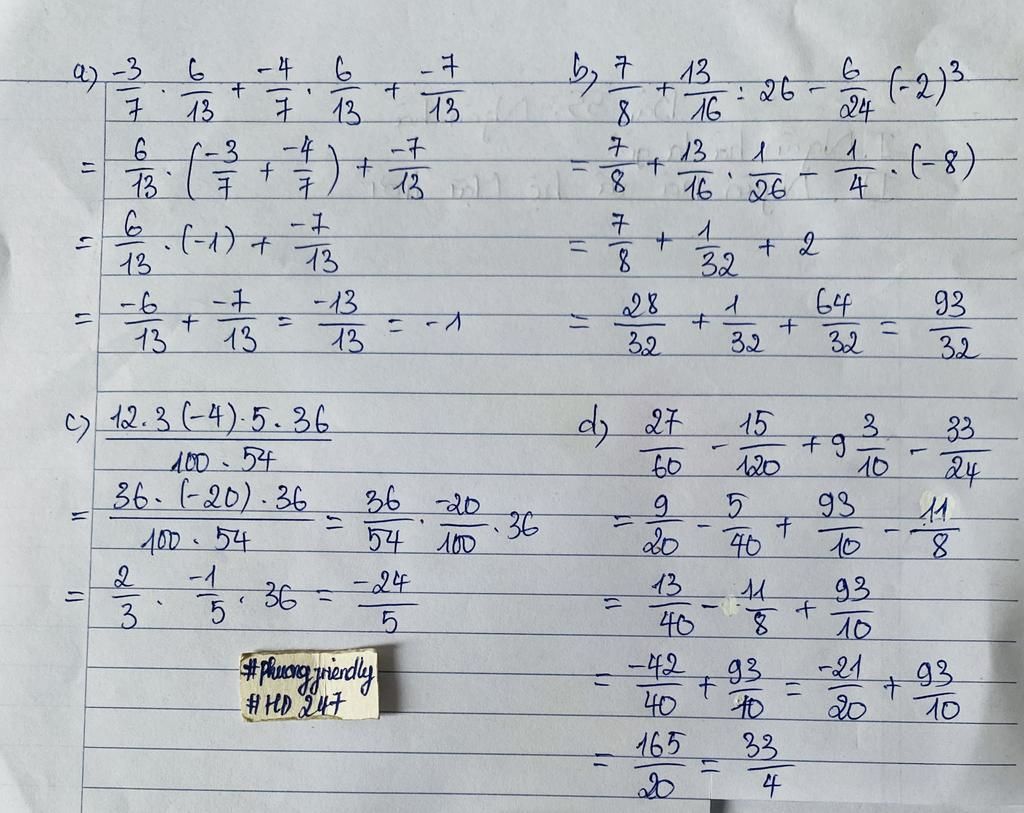 a) -3/7 . 6/13 + -4/7 . 6/13 + -7/13
= 6/13 . (-3/7 + -4/7) + -7/13
= 6/13 . (-1) + -7/13
= -6/13 + -7/13 = -13/13 = -1
b) 7/8 + 13/16 : 26 - 6/24 (-2)³
= 7/8 + 13/16 . 1/26 - 1/4 . (-8)
= 7/8 + 1/32 + 2
= 28/32 + 1/32 + 64/32 = 93/32
c) 12.3(-4).5.36/100.54
= 36.(-20).36/100.54 = 36/54 . -20/100 . 36
= 2/3 . -1/5 . 36 = -24/5
d) 27/60 - 15/120 + 9 3/10 - 33/24
= 9/20 - 5/40 + 93/10 - 11/8
= 13/40 - 11/8 + 93/10
= -42/40 + 93/10 = -21/20 + 93/10
= 165/20 = 33/4
#phuongfriendly
#HD 247